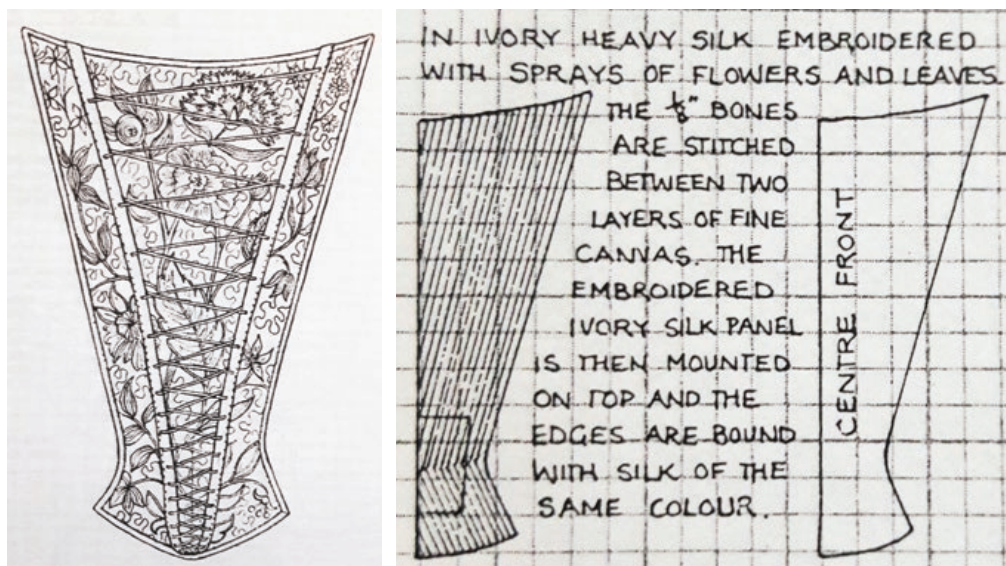 IN IVORY HEAVY SILK EMBROIDERED
WITH SPRAYS OF FLOWERS AND LEAVES
THE ⅛" BONES
ARE STITCHED
BETWEEN TWO
LAYERS OF FINE
CANVAS. THE
EMBROIDERED
IVORY SILK PANEL
IS THEN MOUNTED
ON TOP AND THE
EDGES ARE BOUND
WITH SILK OF THE
SAME COLOUR.
CENTRE FRONT